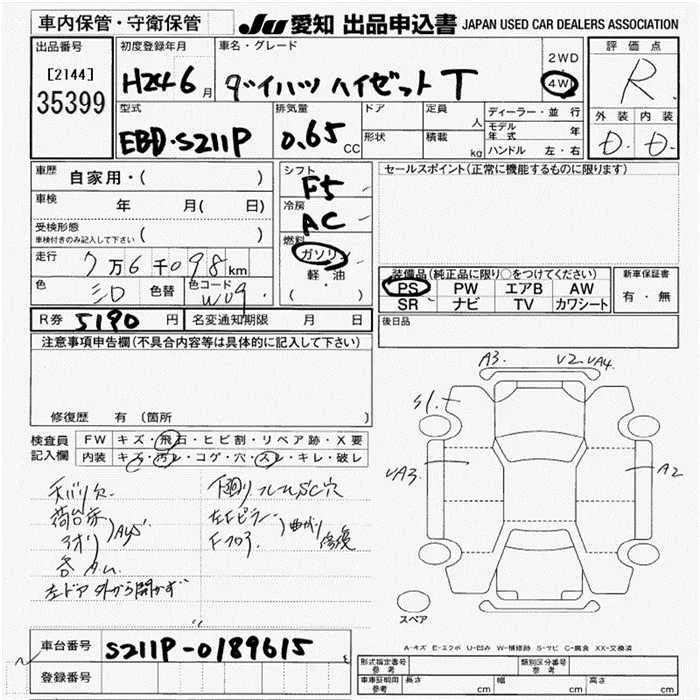 車内保管・守衛保管 JU 愛知 出品申込書 JAPAN USED CAR DEALERS ASSOCIATION
出品番号 初度登録年月 車名・グレード 2WD 評価点
[2144] H24 6 月 ダイハツ ハイゼット T 4WD R
35399
型式 排気量 ドア 定員 人 ディーラー・並行 外装 内装
EBD・S211P 0.65 CC 形状 積載 kg モデル年式 年 D. D.
ハンドル 左・右
車歴 自家用・( ) シフト F5 セールスポイント(正常に機能するものに限ります)
車検 年 月( 日) 冷房 AC
受検形態 ( ) 燃料
車検付きのみ記入して下さい ガソリン
走行 7万6千098 km 軽・油 装備品(純正品に限り○をつけてください) 新車保証書
色 シロ 色替 色コード W09 (・) PS PW エアB AW 有・無
SR ナビ TV カワシート
R券 5190 円 名変通知期限 月 日 後日品
注意事項申告欄(不具合内容等は具体的に記入して下さい)
修復歴 有 (箇所
A3. V2. VA4.
S1.
VA3
A2
検査員 FW キズ・飛石・ヒビ割・リペア跡・X要
記入欄 内装 キズ・汚レ・コゲ・穴・スレ・キレ・破レ
下廻りフレームSC穴
荷台床
アオリ
AYS
左Fピラー
Fフロア
曲がり
修復
各サム.
左ドア外から開かず
スペア
A-キズ E-エクボ U-凹み W-補修跡 S-サビ C-腐食 XX-交換済
車台番号 S211P-0189615
登録番号
形式指定番号 参考 類別区分番号 参考
車庫証明用 参考 長さ cm 幅 cm 高さ cm